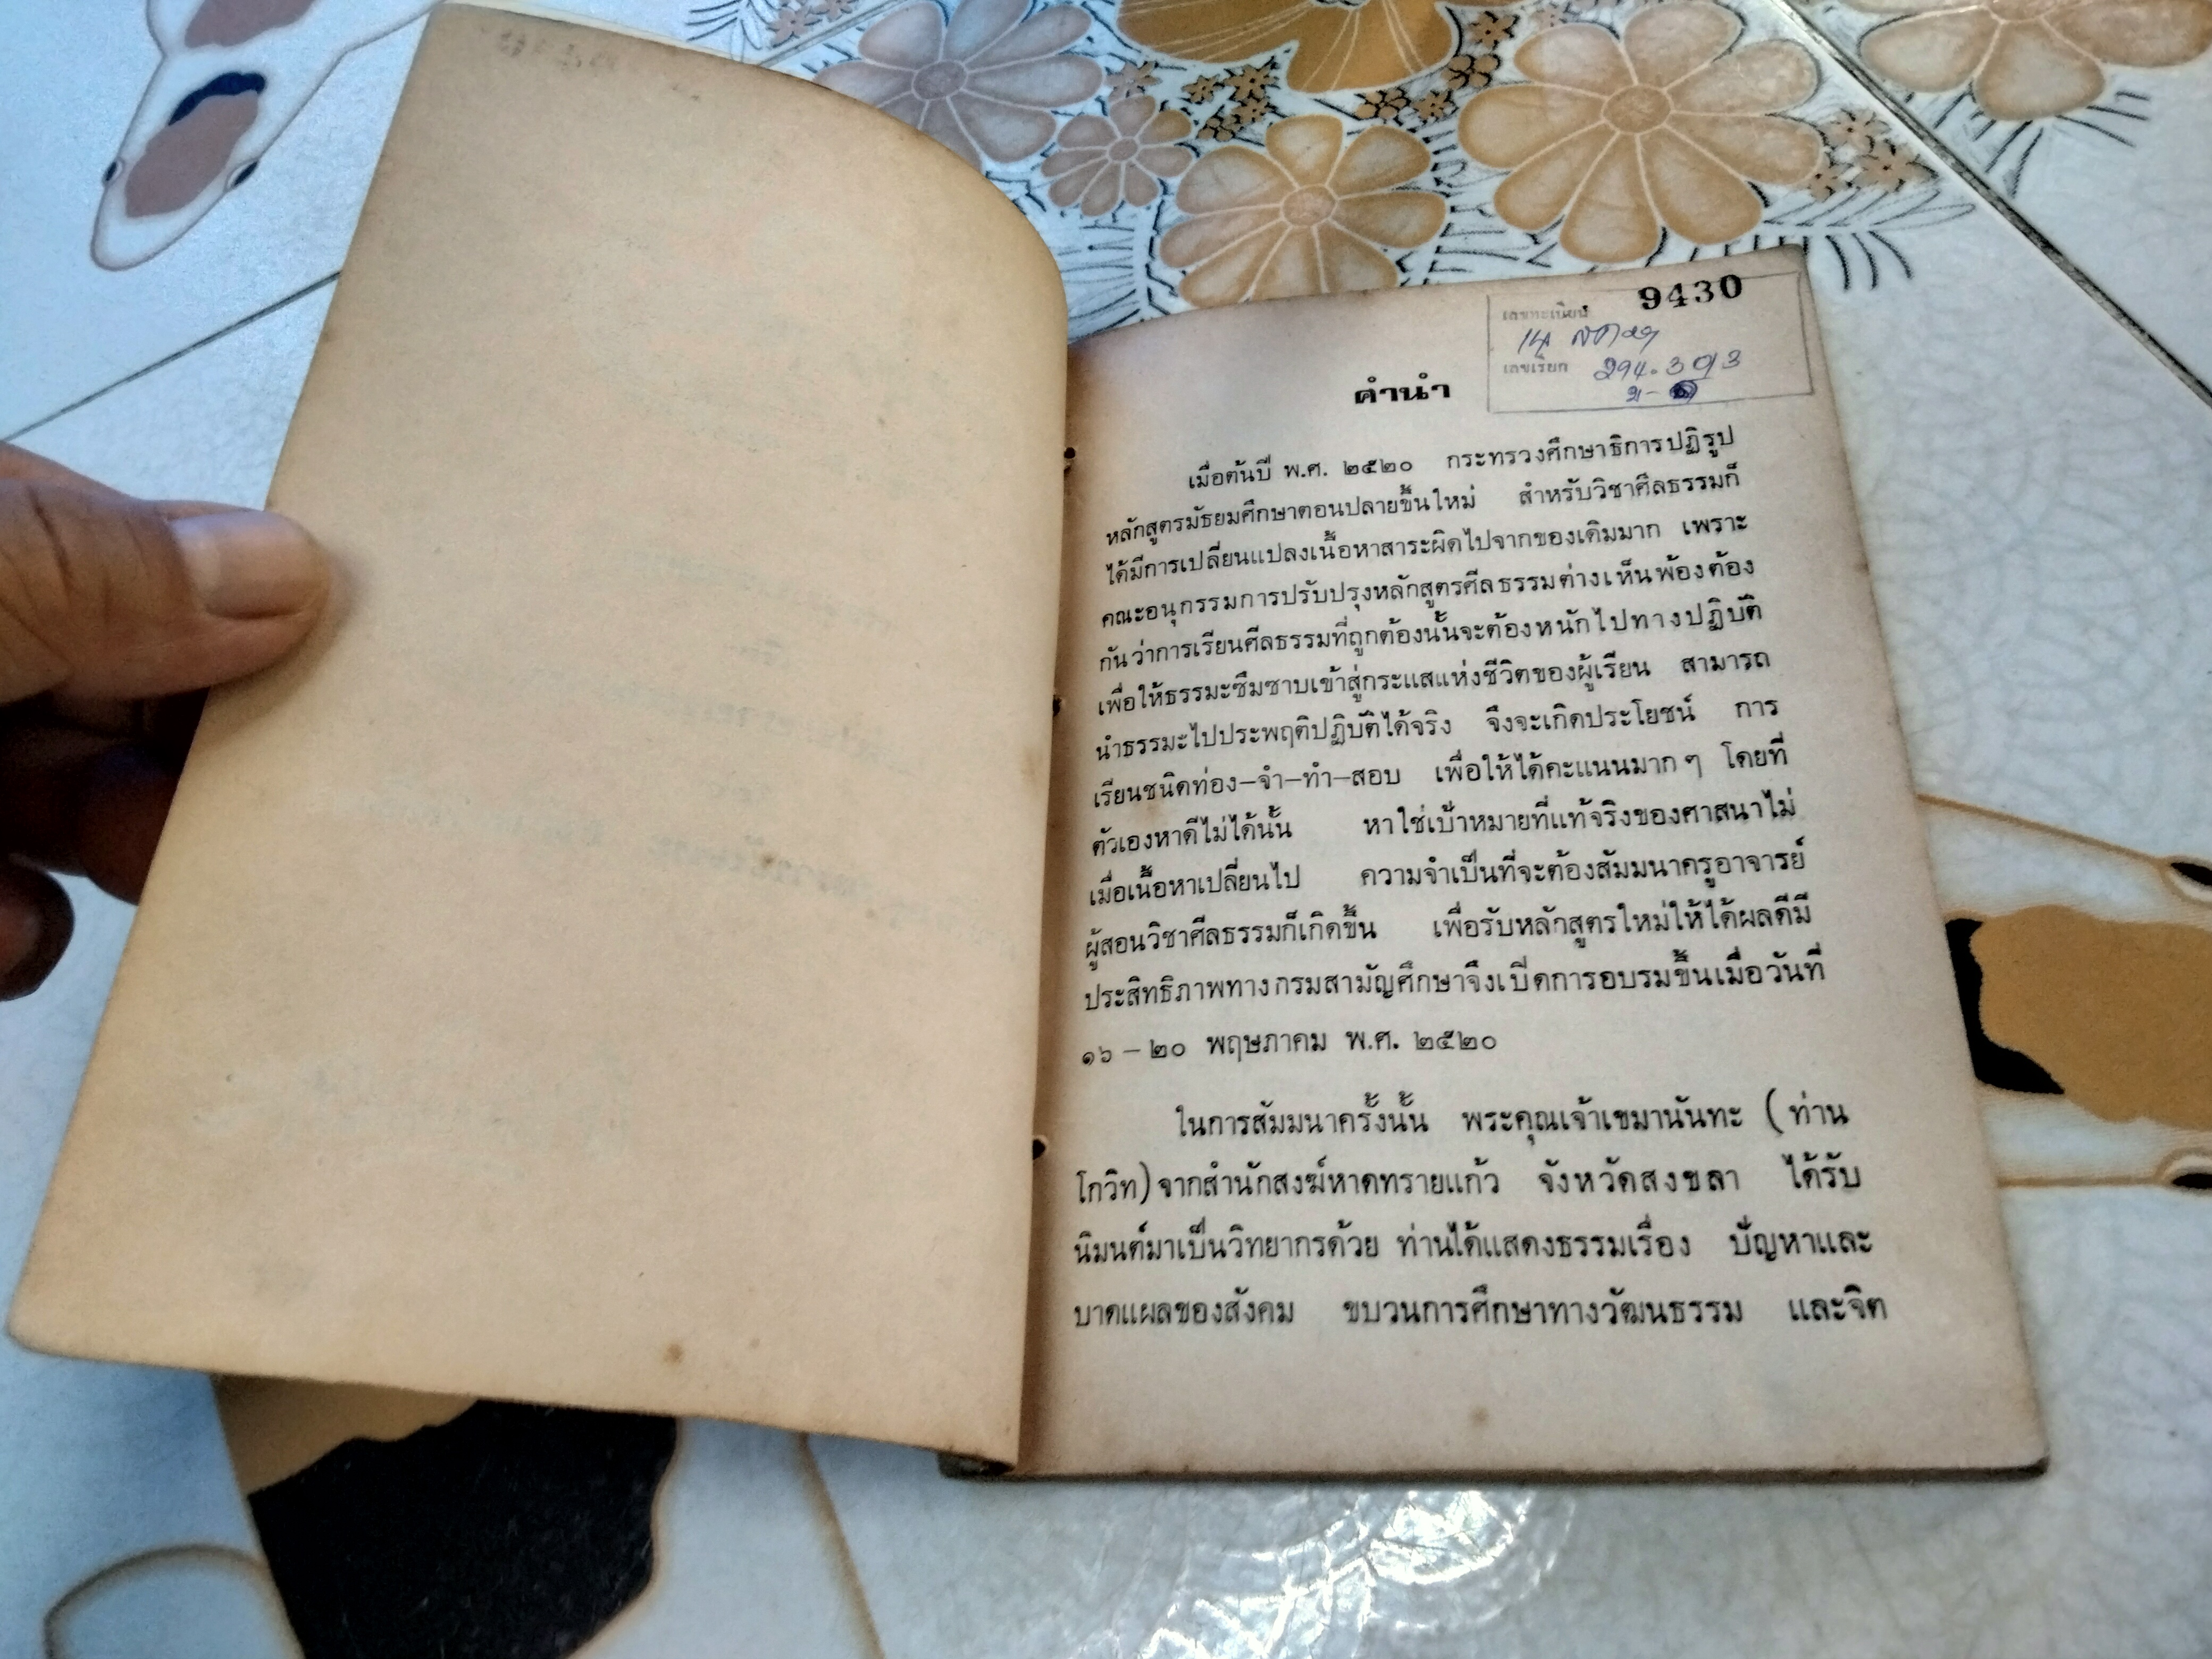 9430
เลขทะเบียน
เลขเรียก 294.313
คำนำ
เมื่อต้นปี พ.ศ. ๒๕๒๐ กระทรวงศึกษาธิการปฏิรูป
หลักสูตรมัธยมศึกษาตอนปลายขึ้นใหม่ สำหรับวิชาศีลธรรมก็
ได้มีการเปลี่ยนแปลงเนื้อหาสาระผิดไปจากของเดิมมาก เพราะ
คณะอนุกรรมการปรับปรุงหลักสูตรศีลธรรมต่างเห็นพ้องต้อง
กันว่าการเรียนศีลธรรมที่ถูกต้องนั้นจะต้องหนักไปทางปฏิบัติ
เพื่อให้ธรรมะซึมซาบเข้าสู่กระแสแห่งชีวิตของผู้เรียน สามารถ
นำธรรมะไปประพฤติปฏิบัติได้จริง จึงจะเกิดประโยชน์ การ
เรียนชนิดท่อง–จำ–ทำ–สอบ เพื่อให้ได้คะแนนมาก ๆ โดยที่
ตัวเองหาดีไม่ได้นั้น หาใช่เป้าหมายที่แท้จริงของศาสนาไม่
เมื่อเนื้อหาเปลี่ยนไป ความจำเป็นที่จะต้องสัมมนาครูอาจารย์
ผู้สอนวิชาศีลธรรมก็เกิดขึ้น เพื่อรับหลักสูตรใหม่ให้ได้ผลดีมี
ประสิทธิภาพทางกรมสามัญศึกษาจึงเปิดการอบรมขึ้นเมื่อวันที่
๑๖ – ๒๐ พฤษภาคม พ.ศ. ๒๕๒๐
ในการสัมมนาครั้งนั้น พระคุณเจ้าเขมานันทะ (ท่าน
โกวิท) จากสำนักสงฆ์หาดทรายแก้ว จังหวัดสงขลา ได้รับ
นิมนต์มาเป็นวิทยากรด้วย ท่านได้แสดงธรรมเรื่อง ปัญหาและ
บาดแผลของสังคม ขบวนการศึกษาทางวัฒนธรรม และจิต